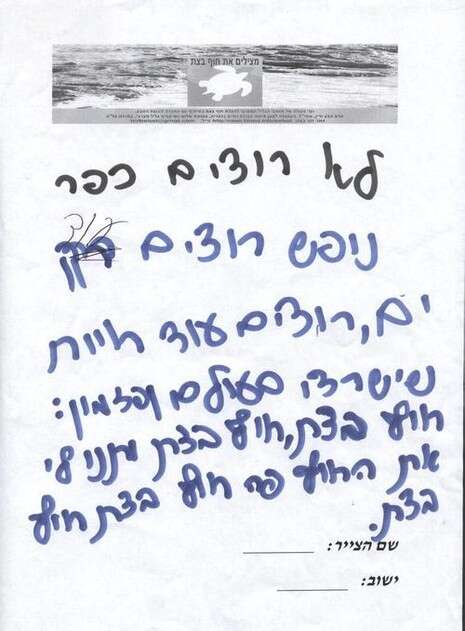 מצילים את חוף בצת
לא רוצים כפר
נופש רוצים
ים, רוצים עוד חיות
שישרדו בעולם ופזמון:
חוף בצת, חוף בצת תתנו לי
את החוף פה חוף בצת חוף
בצת.
שם הצייר:
ישוב: